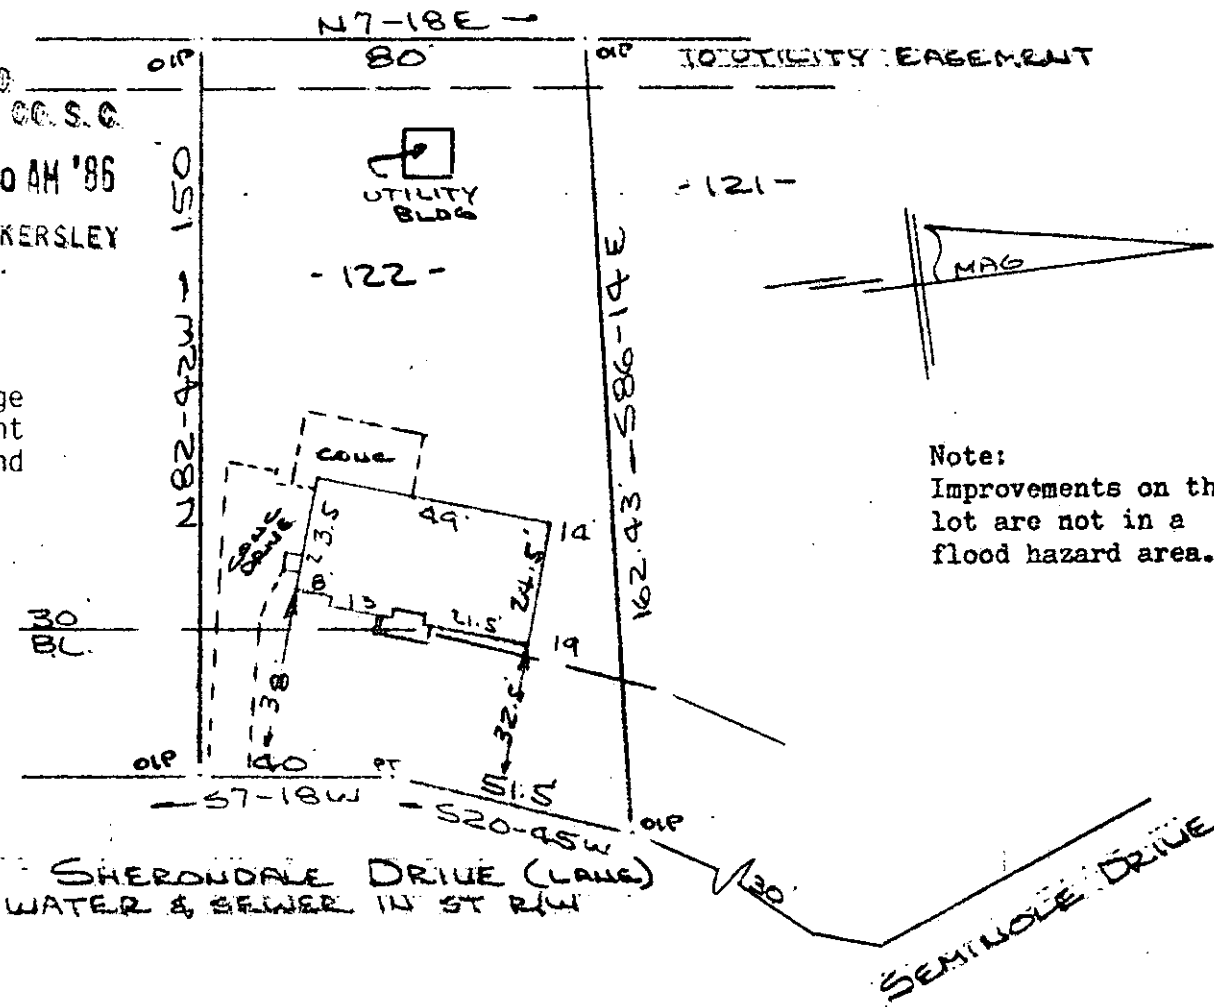 N7-18E
OIP
80'
OIP
10' UTILITY EASEMENT
CO. S. C.
0 AM '86
KERSLEY
UTILITY
BLDG
-121-
-122-
MAG
N82-42W-150
162.43-S86-14E
ge
nt
nd
Note:
Improvements on th
lot are not in a
flood hazard area.
CONC
CONC
DRIVE
49'
14'
23.5
24.5'
8'
13
21.5'
19
30
BL.
38
32.5'
OIP
40
PT
51.5
S7-18W
S20-45W
OIP
30
SHERONDALE DRIVE (LANE)
WATER & SEWER IN ST R/W
SEMINOLE DRIVE